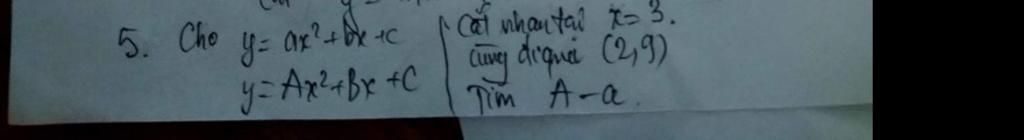 5. Cho y = ax²+bx+c
y = Ax²+Bx+C
Cắt nhau tại x = 3.
cùng đi qua (2,9)
Tìm A-a.